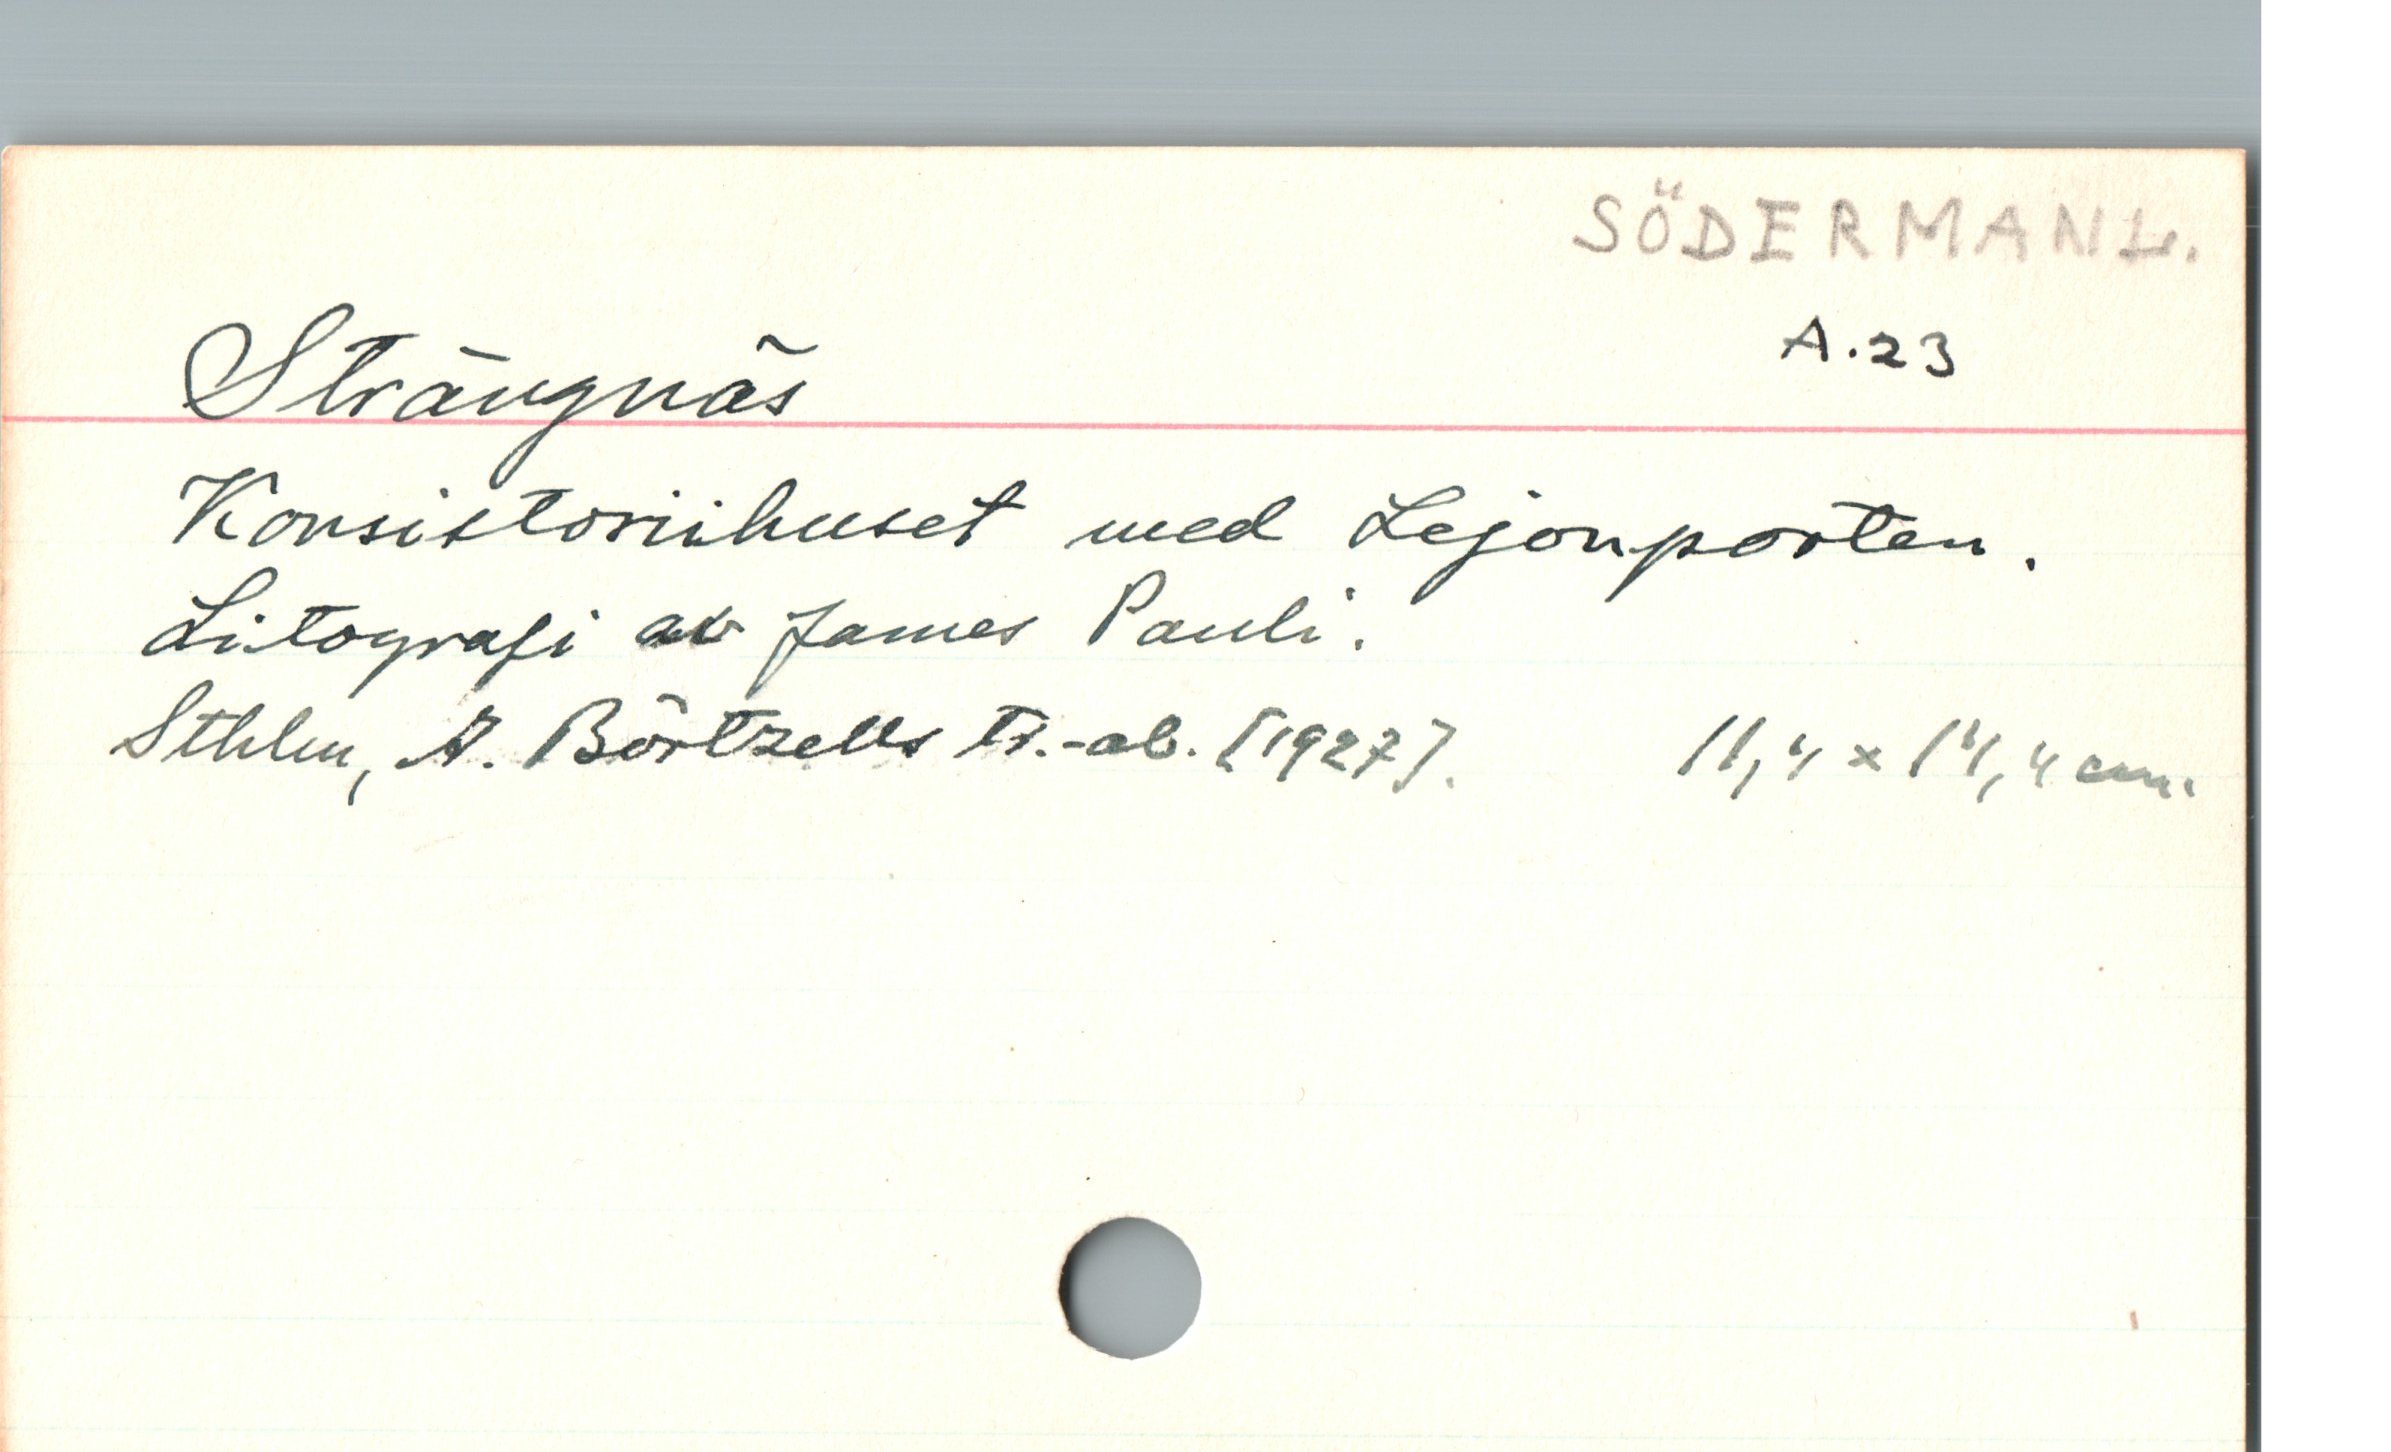 SÖDERMANL.
A.23
Strängnäs
Konsistoriihuset med Lejonporten.
Litografi av James Pauli.
Sthlm, A. Börtzells tr.-ab. [1927]. 11,4 x 14,4 cm.